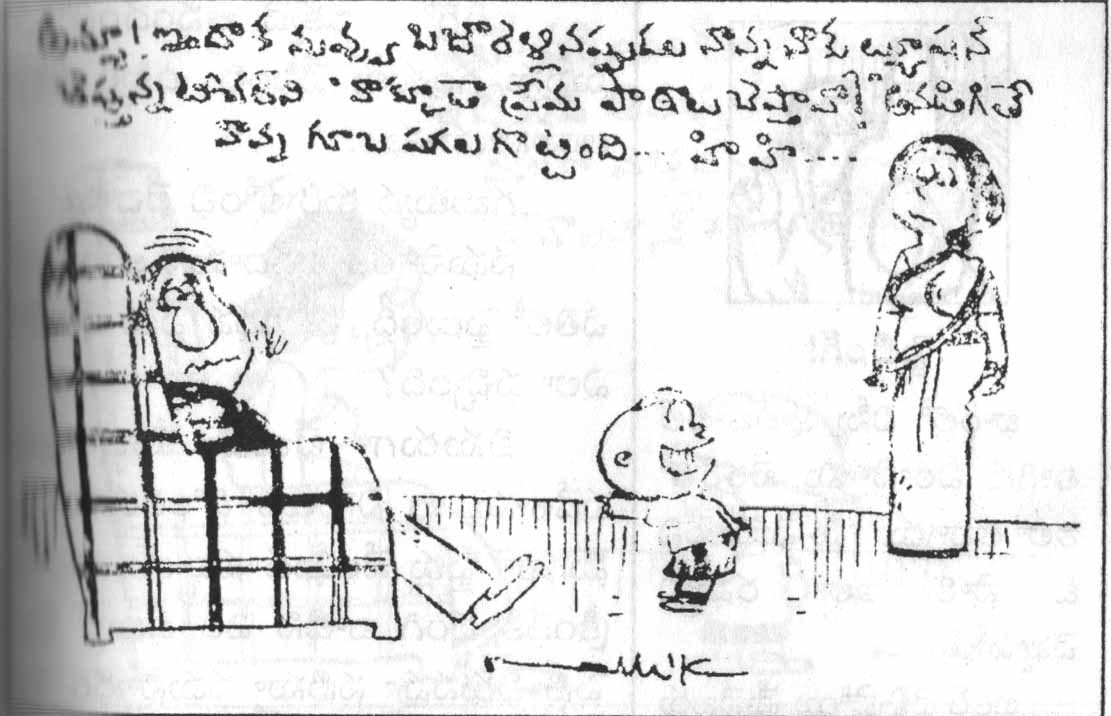 అమ్మా! ఇందాక నువ్వు బజారెళ్ళినప్పుడు నాన్న నాకు ట్యూషన్
చెప్తున్న టీచర్‌ని 'నాక్కూడా ప్రేమ పాఠాలు చెప్తావా!' అనడిగితే
నాన్న గూబ పగలగొట్టింది... హి హి....